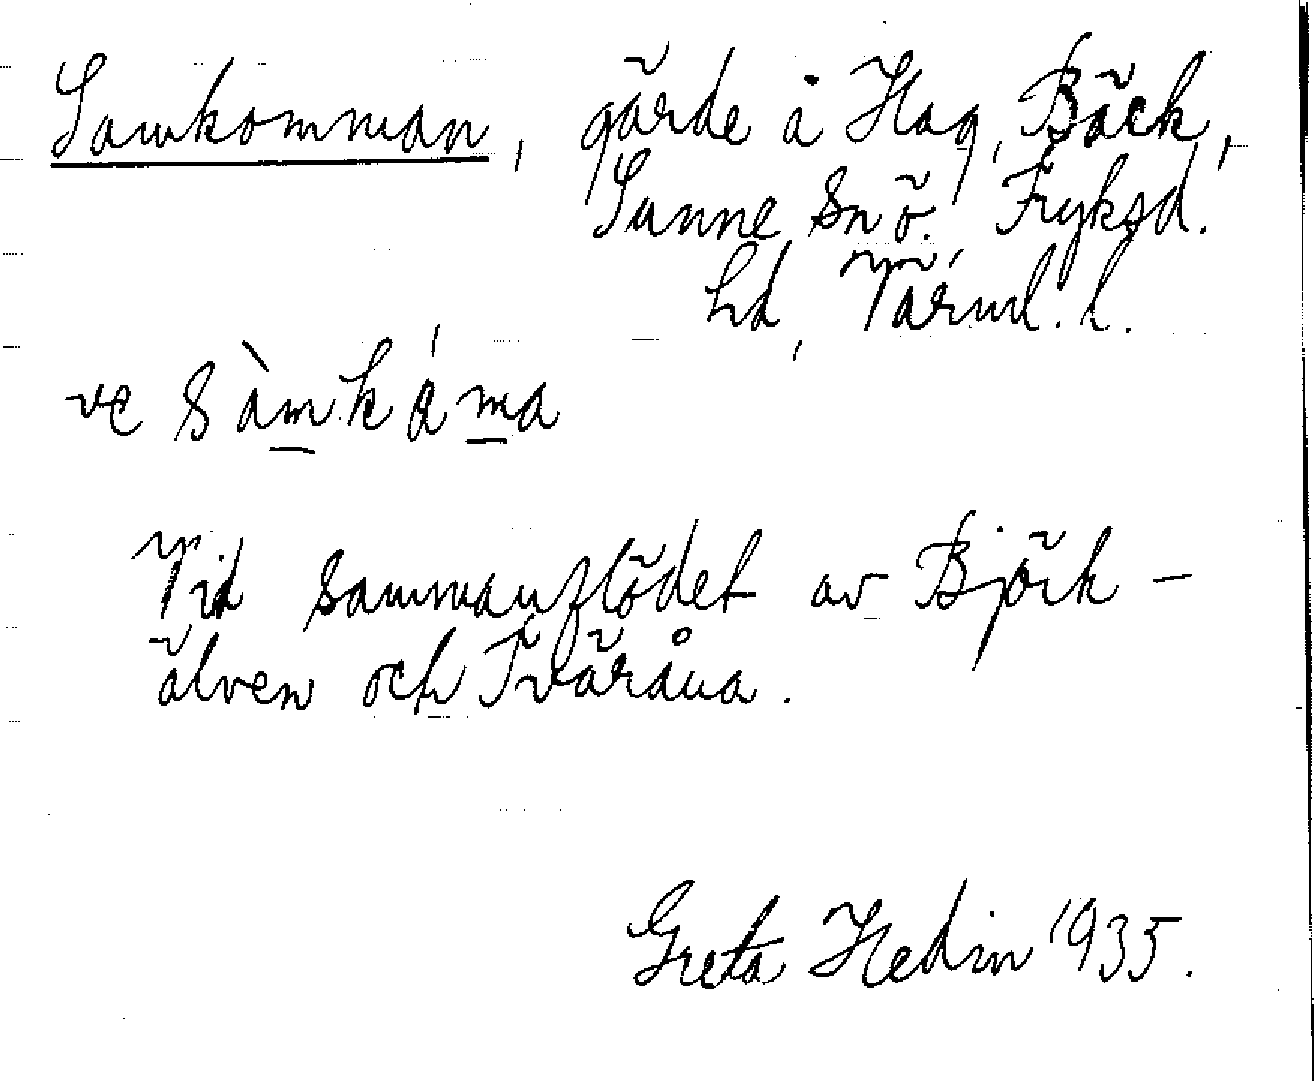 Samkomman, gärde å Hag, Bäck,
Sunne sn ö. Fryksd.
hd, Värml. l.
ve sàmkáma
Vid sammanflödet av Björk-
älven och Tväråna.
Greta Hedin 1935.